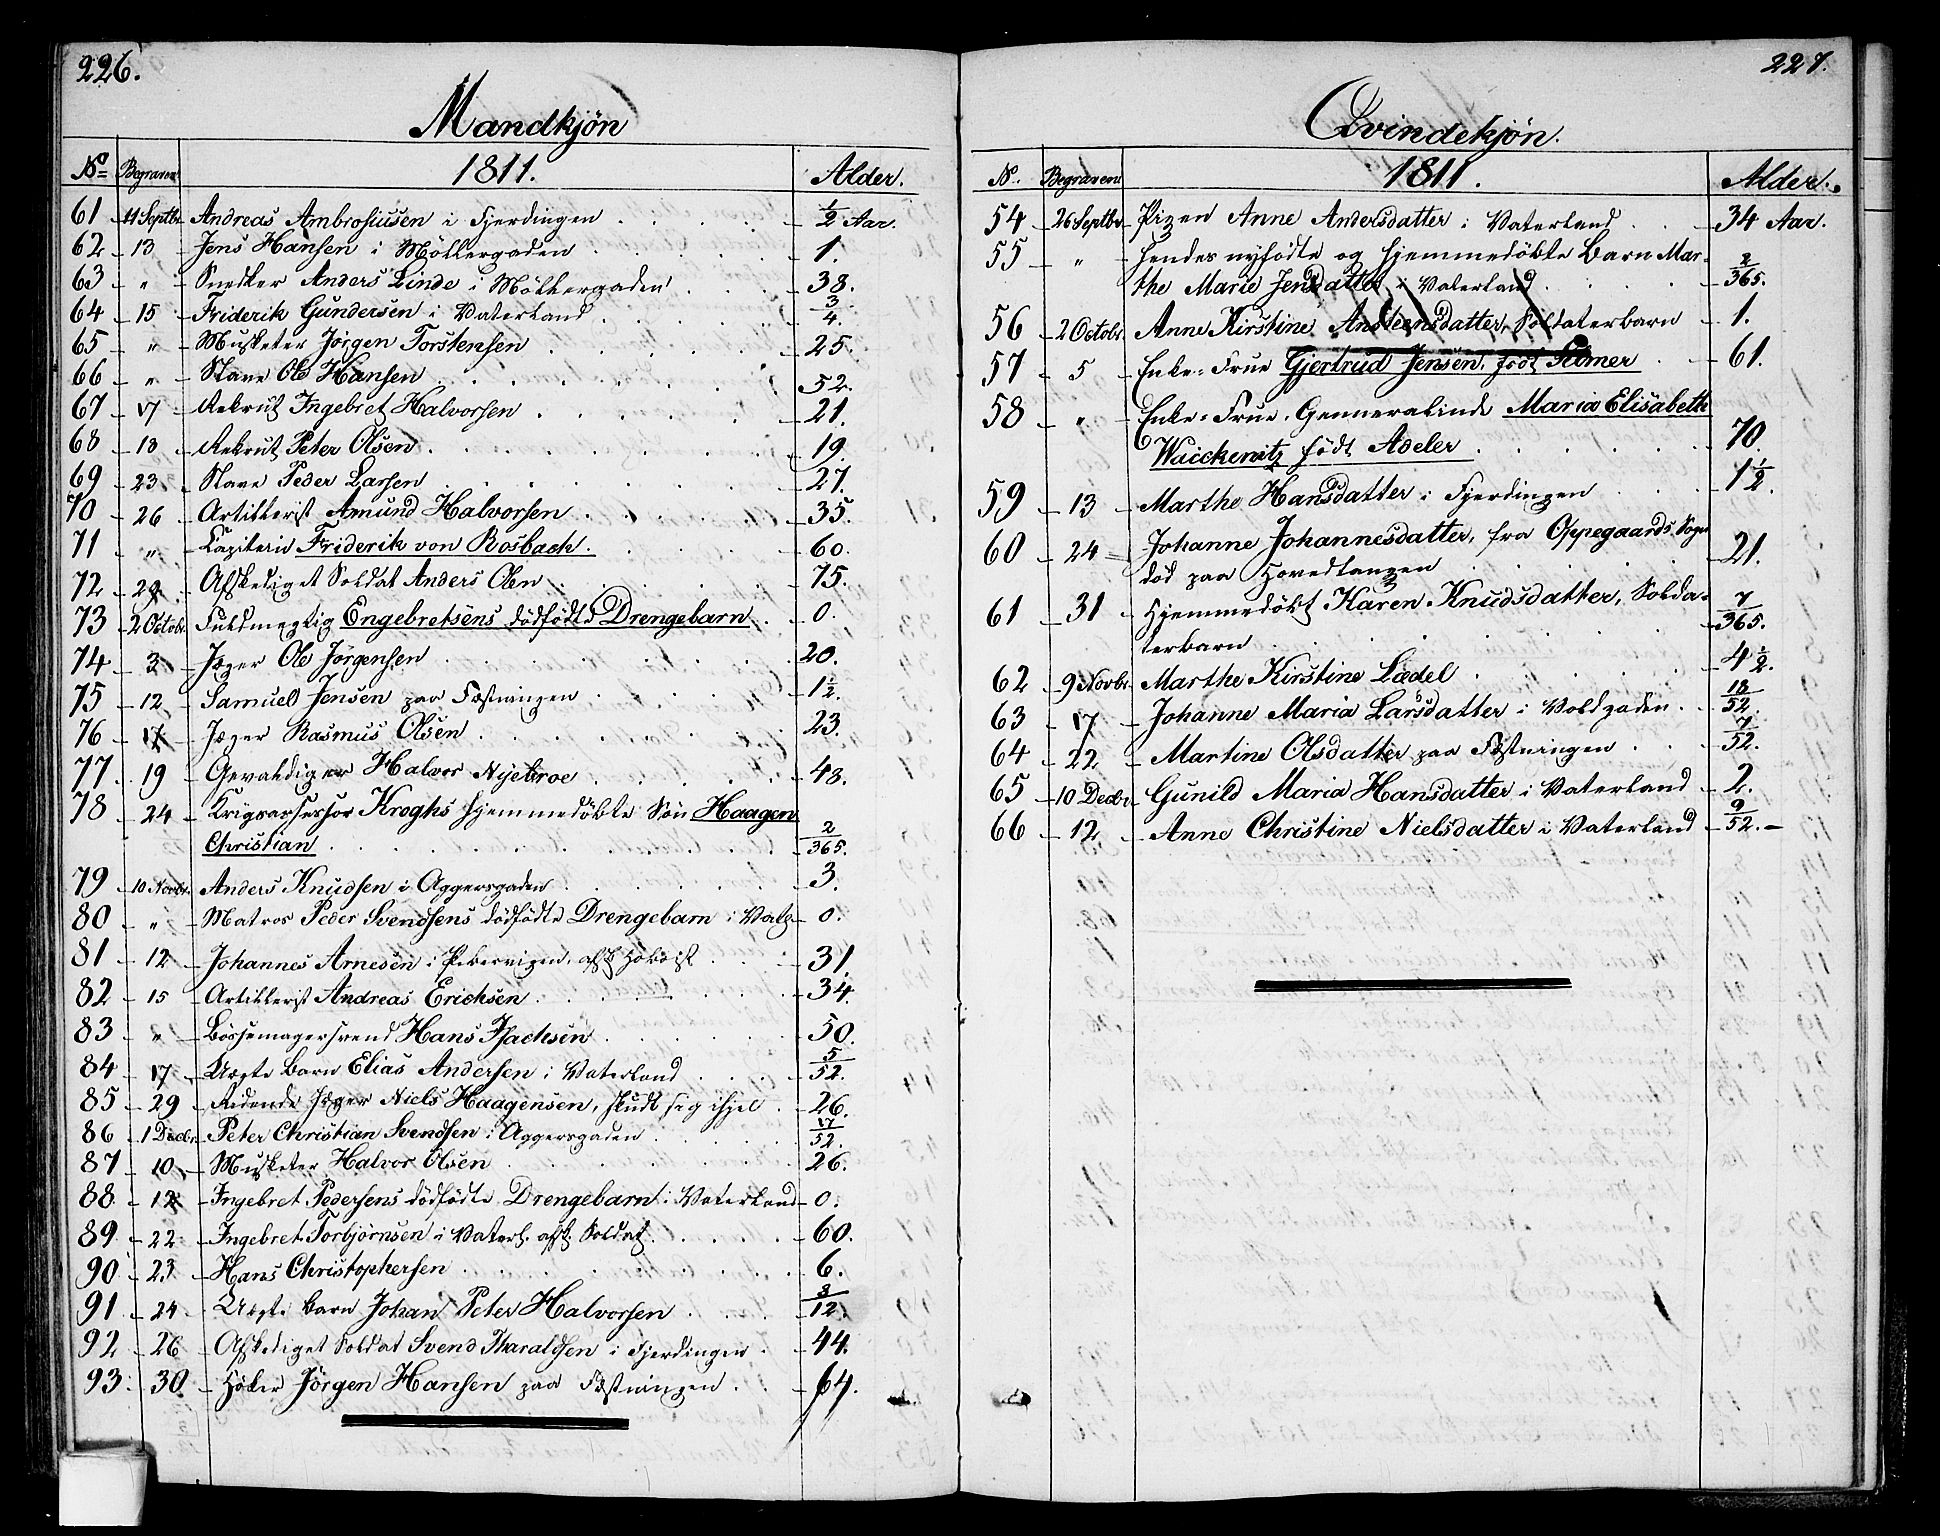 226.
Mandkjön
No Begraven 1811. Alder.
61 11 Septbr. Andreas Ambrosiusen i Fjerdingen 1/2 Aar.
62 13 Jens Hansen i Möllergaden 1.
63 " Snedker Anders Linde i Möllergaden 38.
64 15 Friderik Gundersen i Vaterland 3/4.
65 " Musketer Jörgen Torstensen 25.
66 " Slave Ole Hansen 52.
67 17 Rekrut Ingebret Halvorsen 21.
68 18 Rekrut Peter Olsen 19.
69 23 Slave Peder Larsen 27.
70 26 Artillerist Amund Halvorsen 35.
71 " Capitein Friderik von Rosbach. 60.
72 29 Afskediget Soldat Anders Olsen 75.
73 2 Octobr. Fuldmegtig Engebretsens dödfödte Drengebarn 0.
74 3 Jæger Ole Jörgensen 20.
75 12 Samuel Jensen paa Fæstningen 1 1/2.
76 17 Jæger Rasmus Olsen 23.
77 19 Gevaldiger Halvor Nyebroe 48.
78 24 Krigsassessor Kroghs hjemmedöbte Sön Haagen
Christian 2/365.
79 10 Novbr. Anders Knudsen i Aggersgaden 3.
80 " Matros Peder Svendsens dödfödte Drengebarn i Vat 0.
81 12 Johannes Arnesen i Pebervigen, afsk 31.
82 15 Artillerist Andreas Erichsen 34.
83 " Bössemagersvend Hans Isachsen 50.
84 17 Uægte Barn Elias Andersen i Vaterland 5/52.
85 29 Ridende Jæger Niels Haagensen, skudt sig ihjel 26.
86 1 Decbr. Peter Christian Svendsen i Aggersgaden 17/52.
87 10 Musketer Halvor Olsen 26.
88 12 Ingebret Pedersens dödfödte Drengebarn i Vaterland 0.
89 22 Ingebret Torbjörnsen i Vaterl. afsk. Soldat 60.
90 23 Hans Christophersen 6.
91 24 Uægte Barn Johan Peter Halvorsen 3/12.
92 26 Afskediget Soldat Svend Tharaldsen i Fjerdingen 44.
93. 30. Höker Jörgen Hansen paa Fæstningen 64.
227.
Qvindekjön.
No. Begraven 1811. Alder.
54 26 Septbr. Pigen Anne Andersdatter i Vaterland 34 Aar.
55 " Hendes nyfödte og hjemmedöbte Barn Mar-
the Marie Jensdatter i Vaterland 2/365.
56 2 Octobr. Anne Kirstine Ansteensdatter, Soldaterbarn 1.
57 5 Enke-Frue Gjertrud Jensen, födt 61.
58 " Enke-Frue Genneralinde Maria Elisabeth
Waickenitz födt Adeler 70.
59 13 Marthe Hansdatter i Fjerdingen 1 1/2.
60 24 Johanne Johannesdatter, fra Oppegaards Sogn
död paa Hovedtangen 21.
61 31 Hjemmedöbt Karen Knudsdatter, Solda-
terbarn 7/365.
62 9 Novbr. Marthe Kirstine Lædel 4 1/2.
63 17 Johanne Maria Larsdatter i Voldgaden 18/52.
64 22 Martine Olsdatter paa Fæstningen 7/52.
65 10 Decbr. Gunild Maria Hansdatter i Vaterland 2.
66 12 Anne Christine Nielsdatter i Vaterland 9/52.